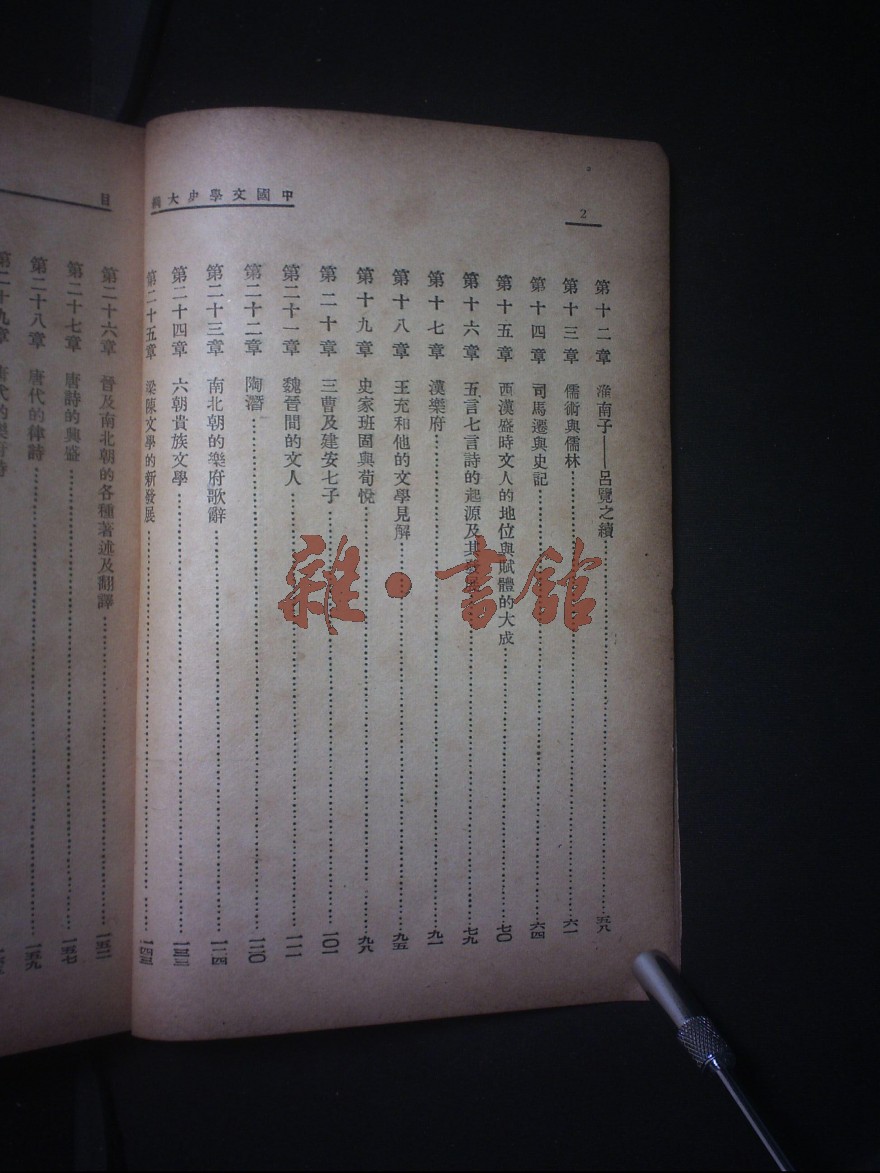 中國文學史大綱
2
第十二章 淮南子——呂覽之續……五八
第十三章 儒術與儒林……六一
第十四章 司馬遷與史記……六四
第十五章 西漢盛時文人的地位與賦體的大成……七〇
第十六章 五言七言詩的起源及其發展……七九
第十七章 漢樂府……九一
第十八章 王充和他的文學見解……九五
第十九章 史家班固與荀悅……九八
第二十章 三曹及建安七子……一〇一
第二十一章 魏晉間的文人……一一一
第二十二章 陶潛……一二〇
第二十三章 南北朝的樂府歌辭……一二四
第二十四章 六朝貴族文學……一三三
第二十五章 梁陳文學的新發展……一四三
目
第二十六章 晉及南北朝的各種著述及翻譯……一五二
第二十七章 唐詩的興盛……一五七
第二十八章 唐代的律詩……一五九
第二十九章 唐代的樂府詩
雜·書館